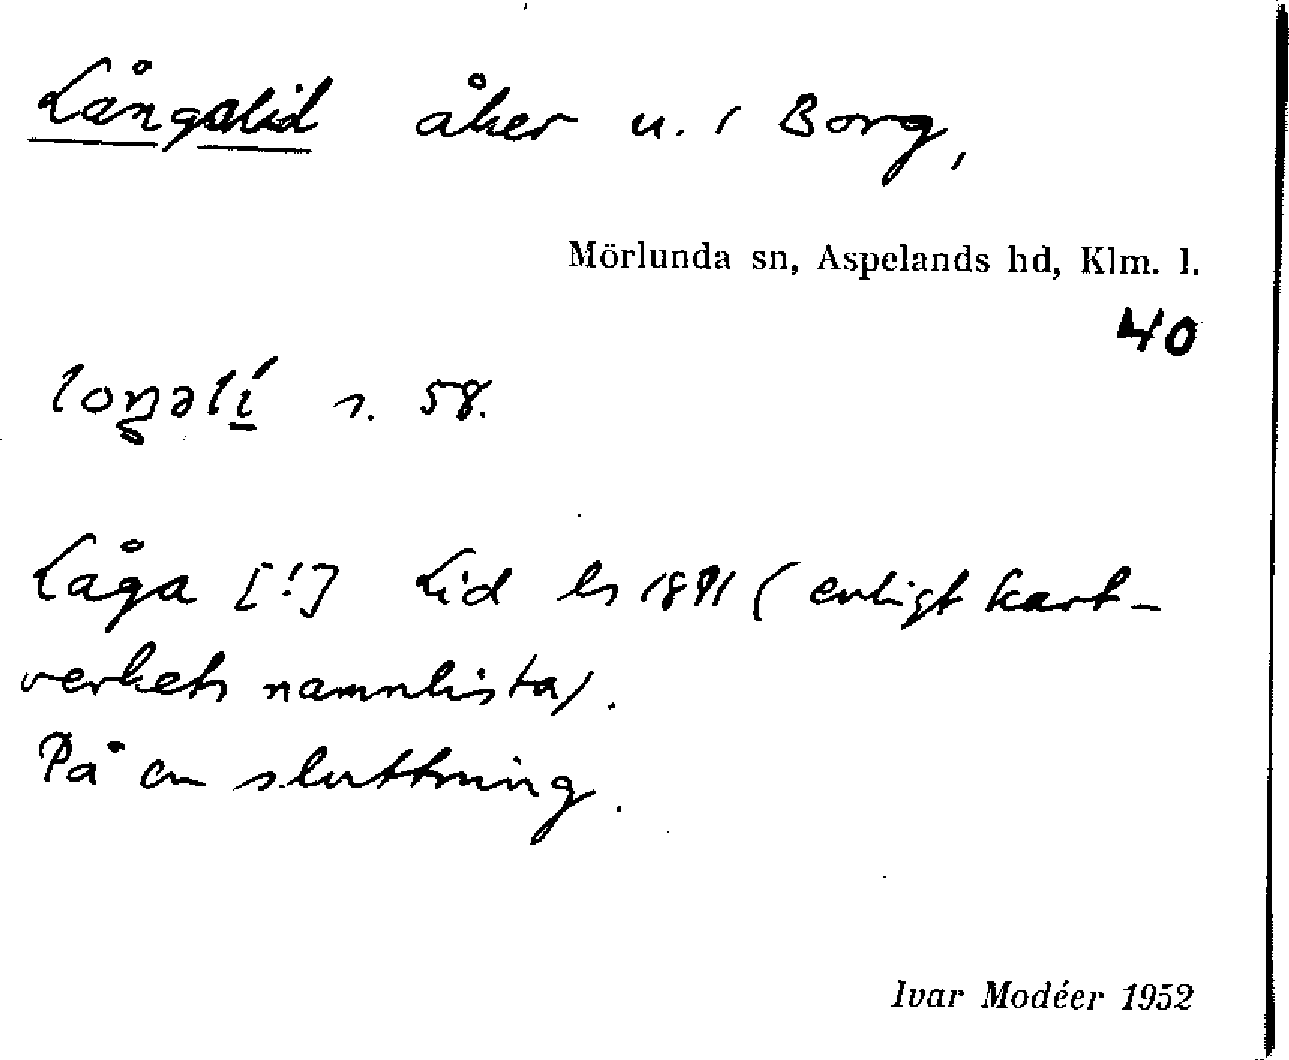 Långalid åker u. i Borg,
Mörlunda sn, Aspelands hd, Klm. l.
40
loŋəlí s. 58.
Låga [!] Lid ls 1891 (enligt kart-
verkets namnlista).
På en sluttning.
Ivar Modéer 1952